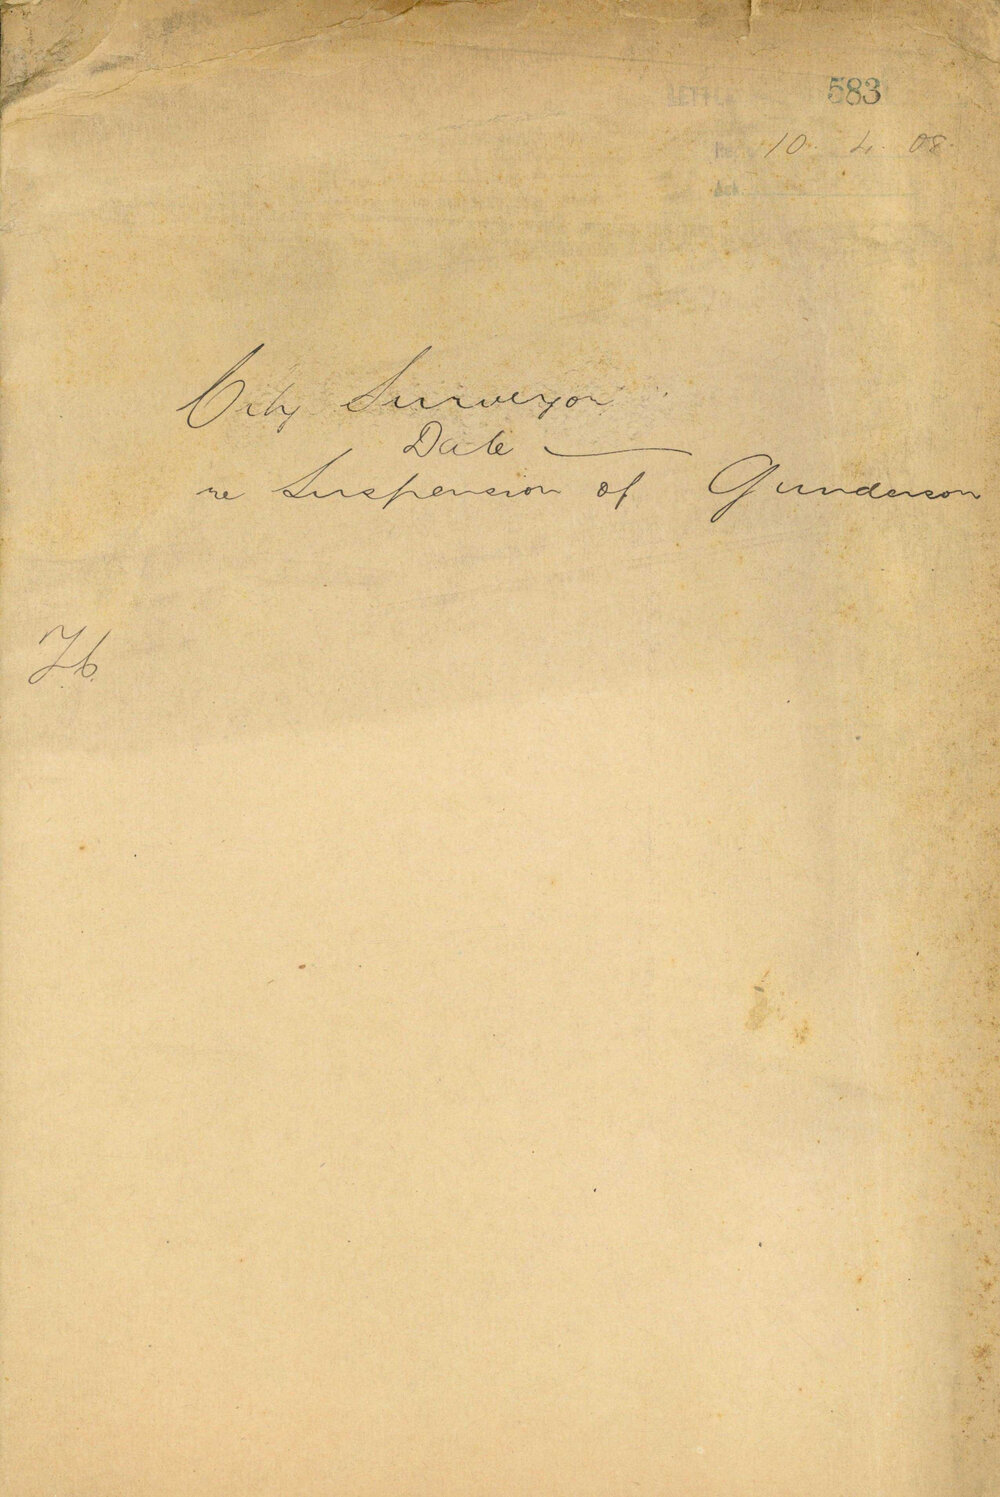 583
10. 4. 08.
Ack
City Surveyor
Date
re Suspension of Gunderson